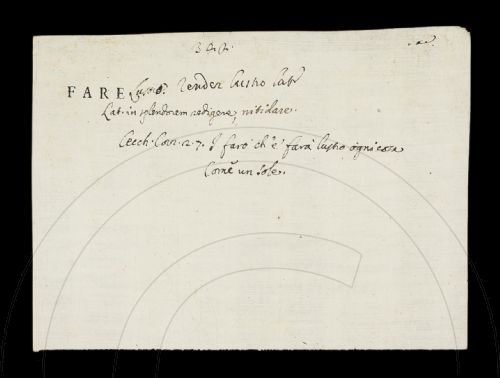 FARE Lustro. Render lustro
Lat. in splendorem redigere, nitidare.
Cecch. Corr. 2. 7. I farò ch'e' farà lustro ogni cosa
Com'è un sole.